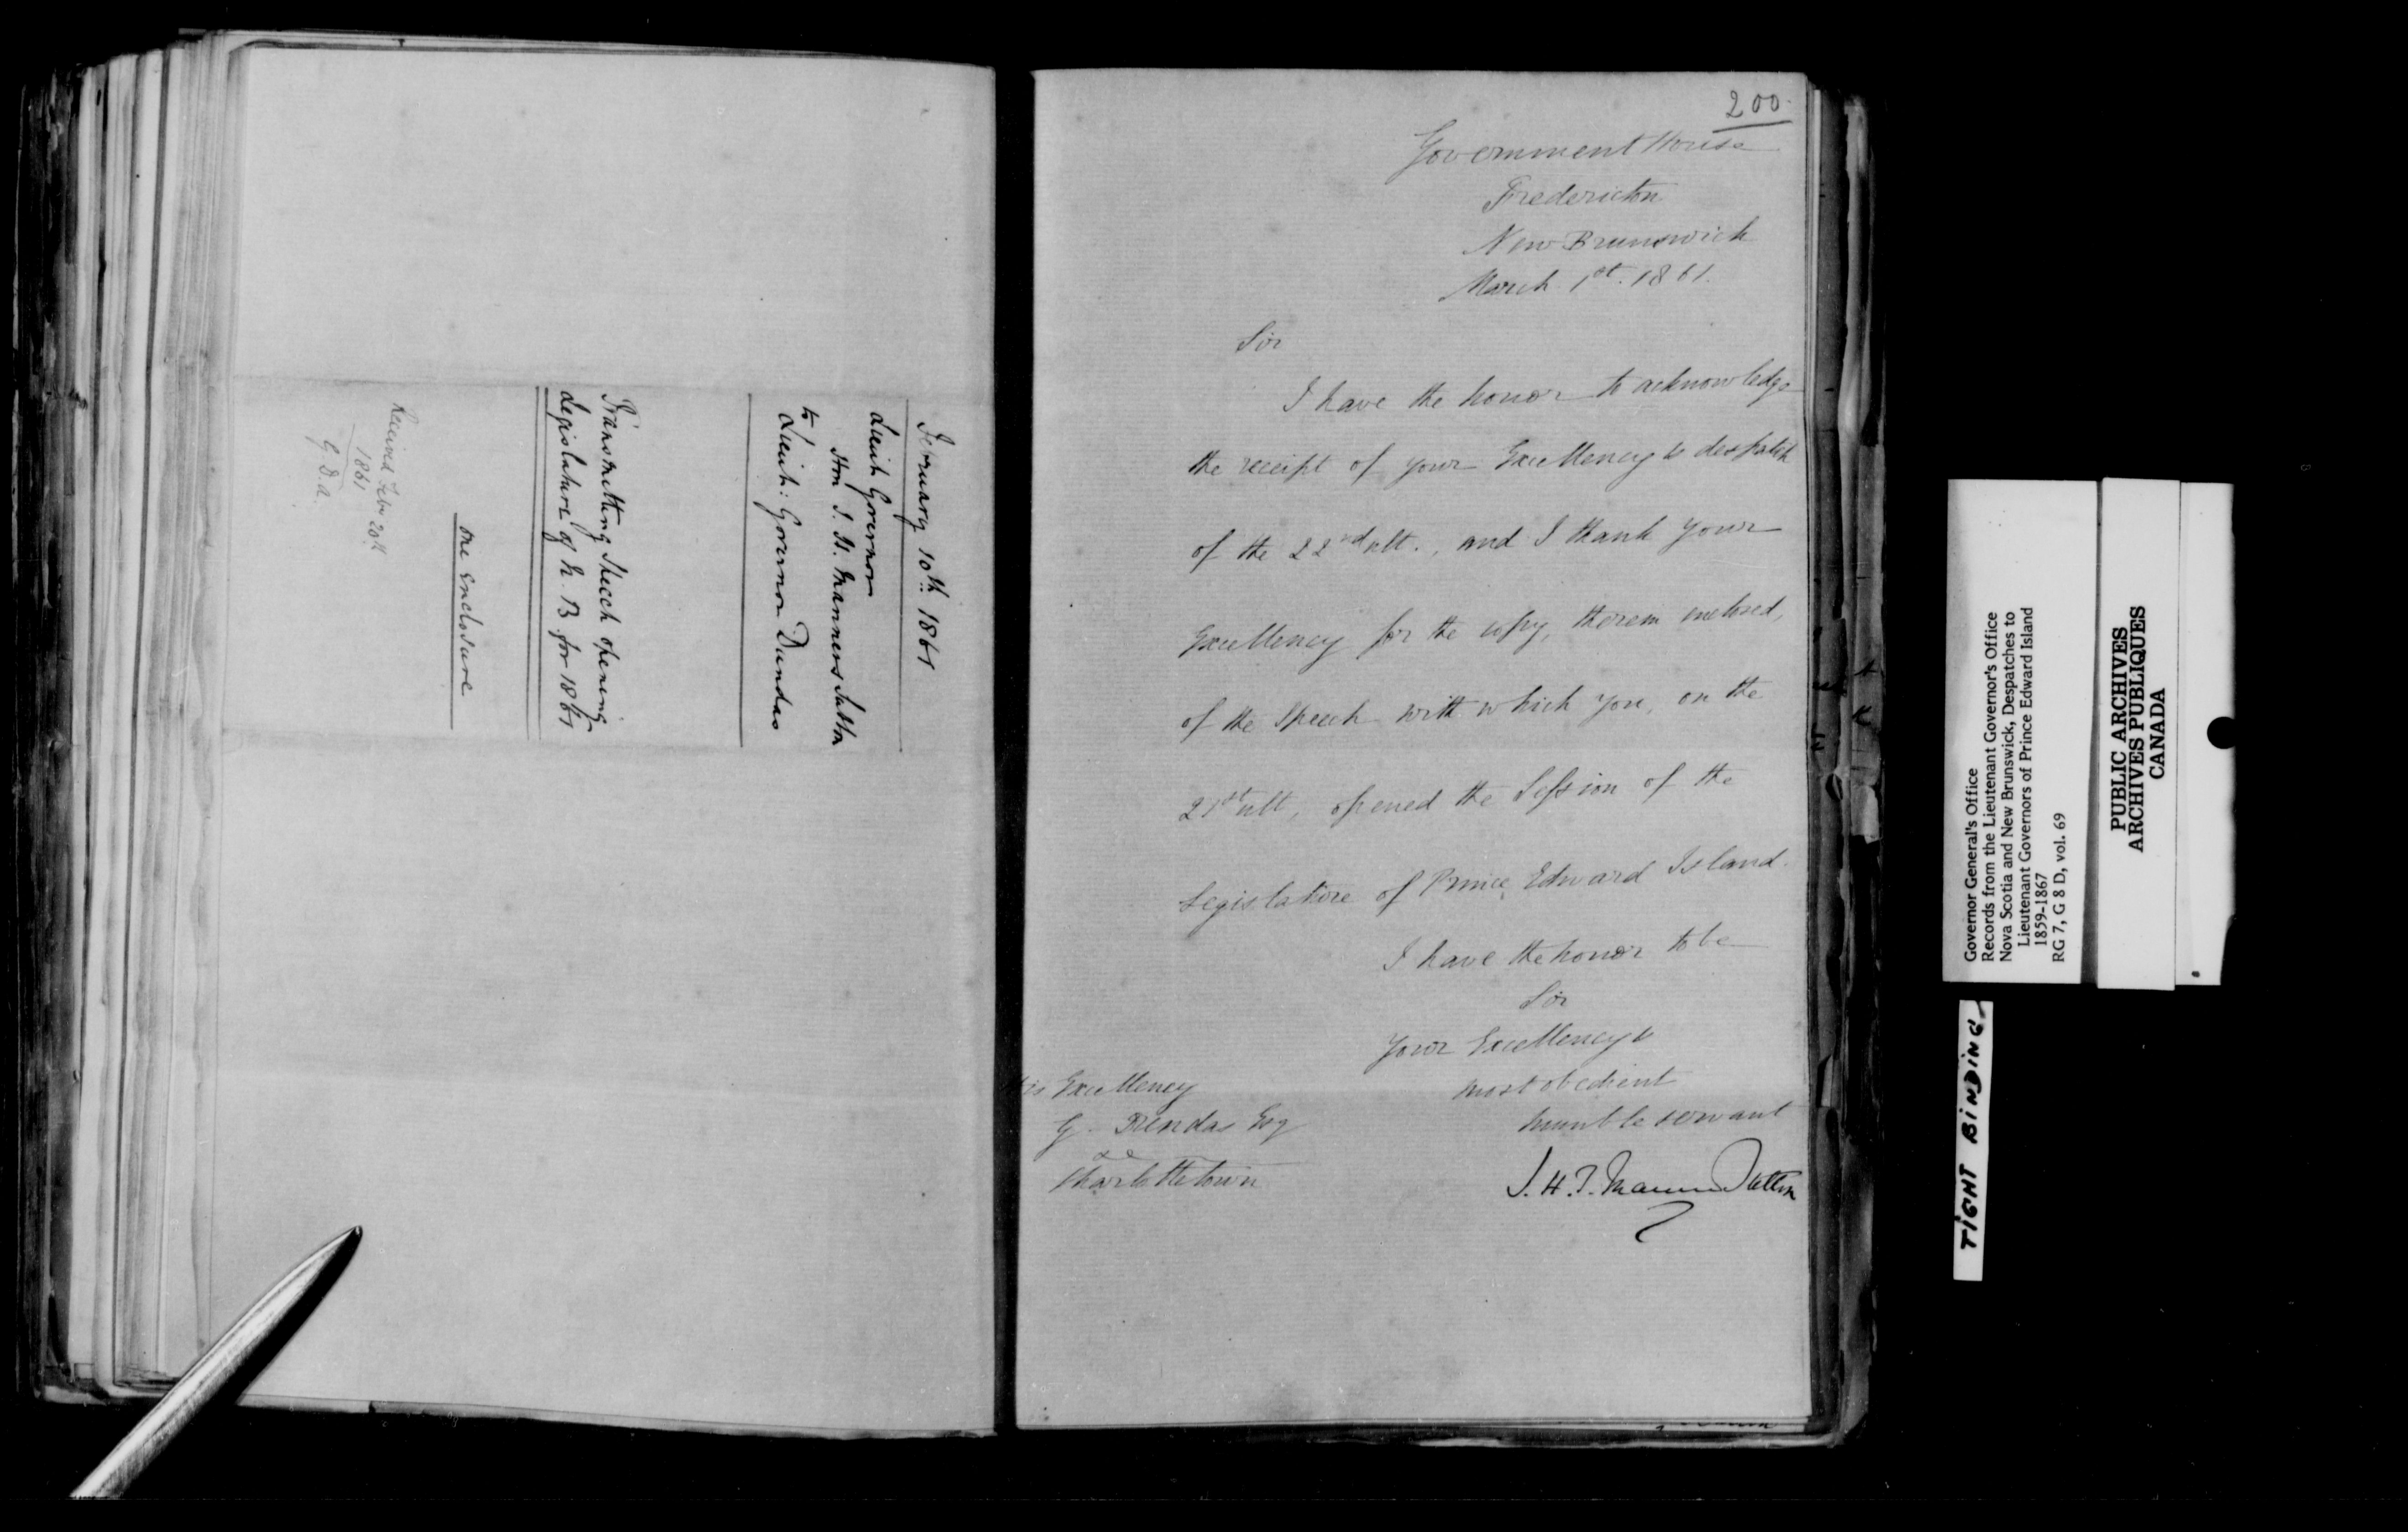 February 10th 1861
Lieut Governor
Hon J. H. Manners Sutton
to
Lieut: Governor Dundas
Transmitting Speech opening
Legislature of N. B. for 1861
One Enclosure
Received Feby 20th
1861
G. D. a.
200
Government House
Fredericton
New Brunswick
March 1st. 1861.
Sir
I have the honor to acknowledge
the receipt of your Excellency's despatch
of the 22nd ult., and I thank Your
Excellency for the copy, therein enclosed,
of the Speech with which you, on the
21st ult, opened the Session of the
Legislature of Prince Edward Island.
I have the honor to be
Sir
Your Excellency's
most obedient
humble servant
J. H. T. Manners Sutton
His Excellency
G. Dundas Esq
&c
Charlottetown
Governor General's Office
Records from the Lieutenant Governor's Office
Nova Scotia and New Brunswick, Despatches to
Lieutenant Governors of Prince Edward Island
1859-1867
RG 7, G 8 D, vol. 69
PUBLIC ARCHIVES
ARCHIVES PUBLIQUES
CANADA
TIGHT BINDING